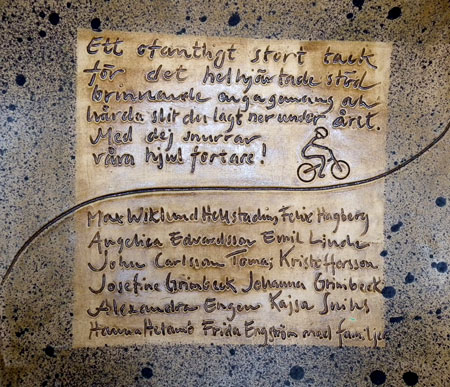 Ett ofantligt stort tack
för det helhjärtade stöd
brinnande engagemang och
hårda slit du lagt ner under året.
Med dej snurrar
våra hjul fortare!
Max Wiklund Hellstadius Felix Hagberg
Angelica Edvardsson Emil Linde
John Carlsson Tomas Kristoffersson
Josefine Grimbeck Johanna Grimbeck
Alexandra Engen Kajsa Snihs
Hanna Helamo Frida Engström med familjer